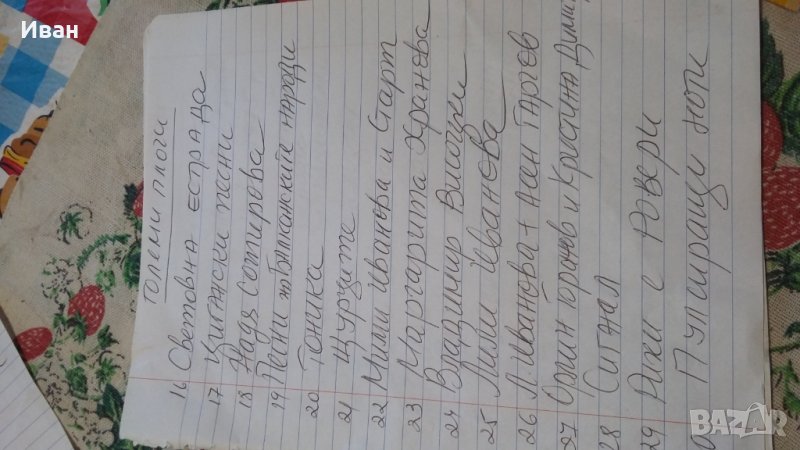 Иван
ГОЛЕМИ ПЛОЧИ
16 Световна естрада
17 Цигански песни
18 Надя Сотирова
19 Песни на Балканските народи
20 Тоника
21 Щурците
22 Мими Иванова и Старт
23 Маргарита Хранова
24 Владимир Висоцки
25 Лили Иванова
26 Л. Иванова + Асен Гаргов
27 Орлин Горанов и Кристина Дими
28 Сигнал
29 Рики е Повери
Пулсиращи ноти
BAZAR